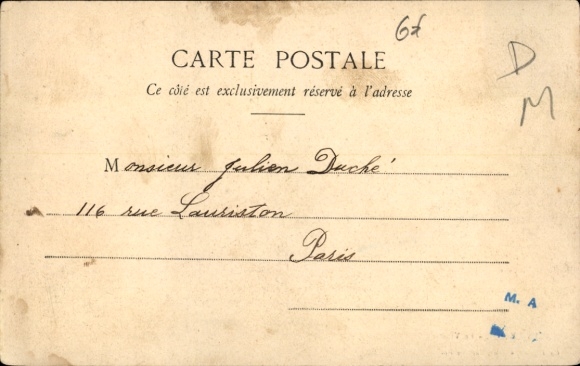 6f
D
M
CARTE POSTALE
Ce côté est exclusivement réservé à l'adresse
Monsieur Julien Duché
116 rue Lauriston
Paris
M. A